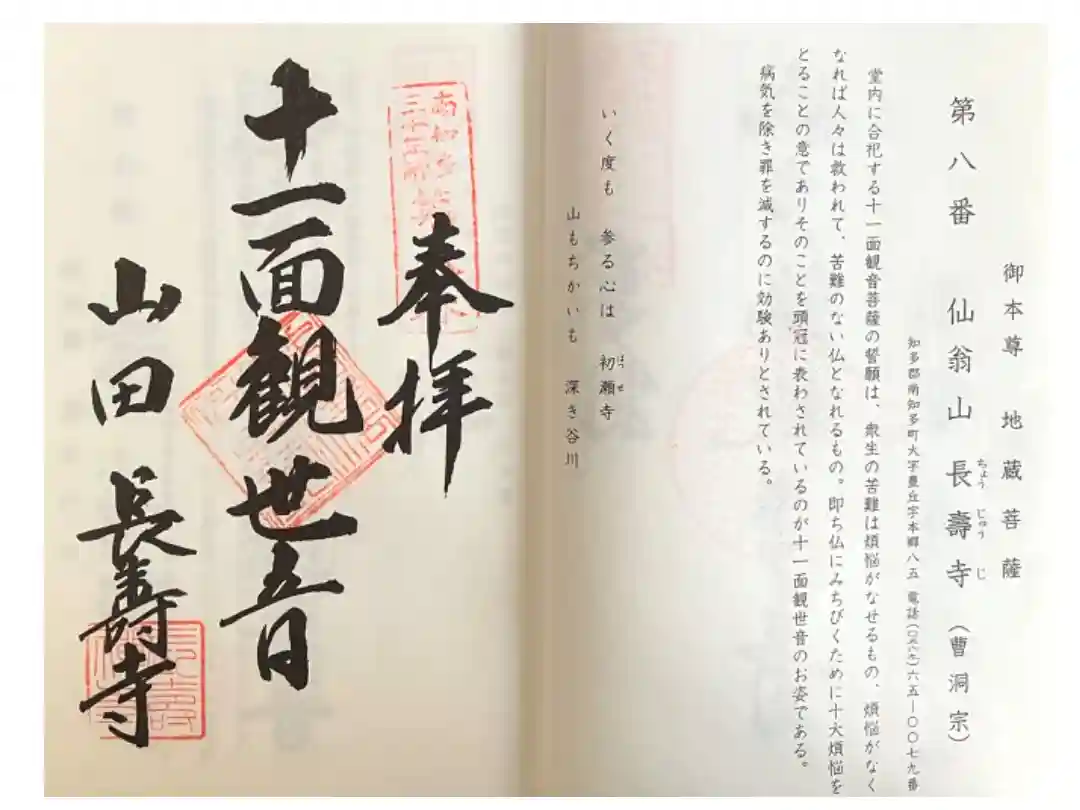 御本尊 地蔵菩薩
第八番 仙翁山 長壽寺(曹洞宗)
ちょう じゅう じ
知多郡南知多町大字豊丘字本郷八五 電話(〇五六九)六五ー〇〇七九番
堂内に合祀する十一面観音菩薩の誓願は、衆生の苦難は煩悩がなせるもの、煩悩がなく
なれば人々は救われて、苦難のない仏となれるもの。即ち仏にみちびくために十大煩悩を
とることの意でありそのことを頭冠に表わされているのが十一面観世音のお姿である。
病気を除き罪を滅するのに効験ありとされている。
いく度も 参る心は 初瀬寺
はっせ
山もちかいも 深き谷川
南知多
三十三所
奉拝
十一面観世音
山田 長壽寺